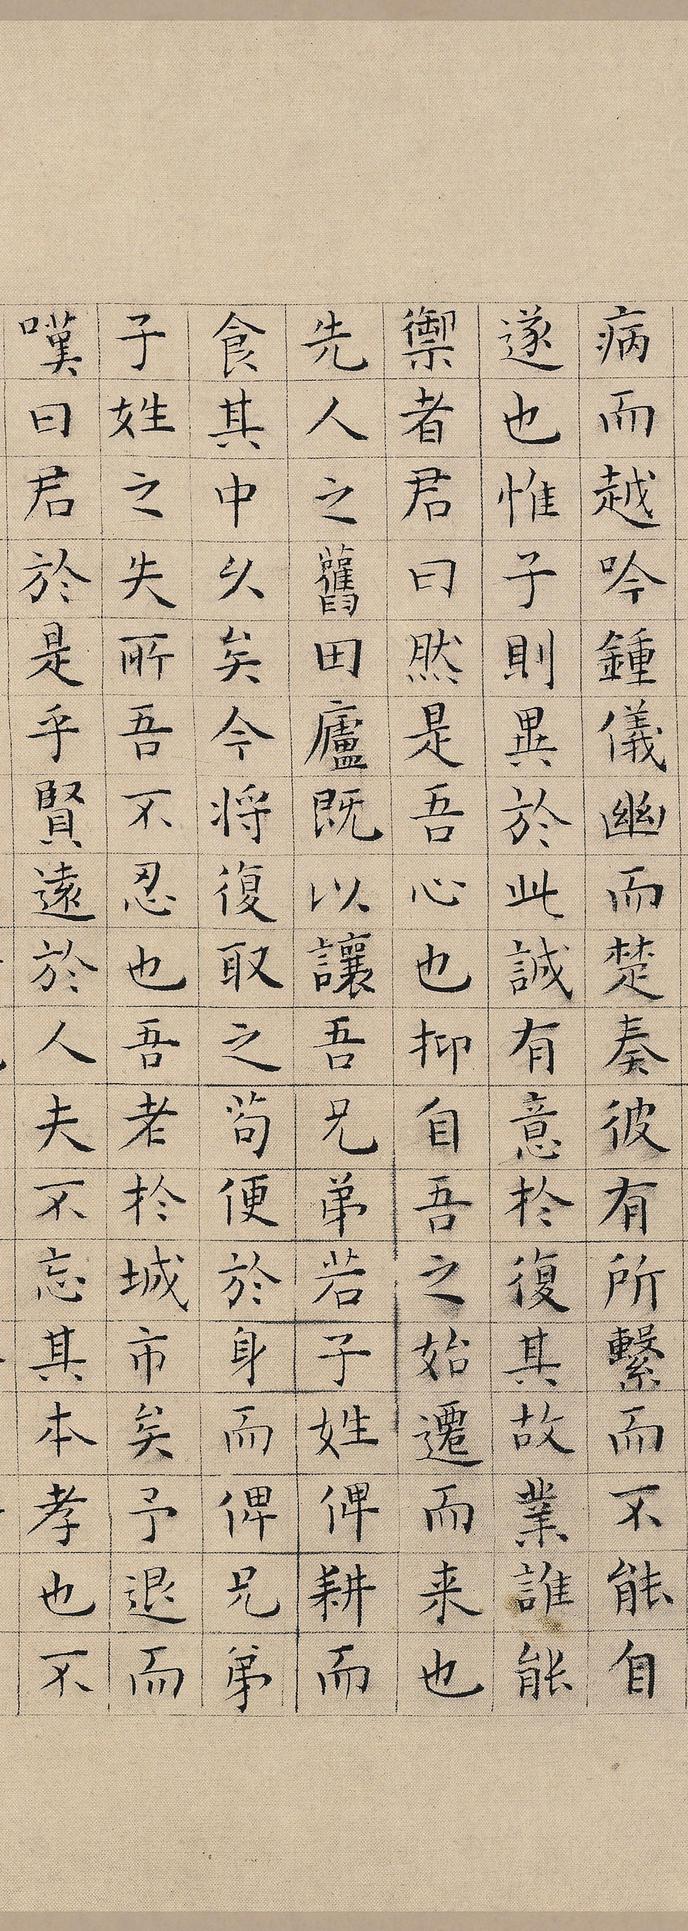 病而越吟鍾儀幽而楚奏彼有所繫而不能自
遂也惟子則異於此誠有意於復其故業誰能
禦者君曰然是吾心也抑自吾之始遷而来也
先人之舊田廬既以讓吾兄弟若子姓俾耕而
食其中久矣今将復取之苟便於身而俾兄弟
子姓之失所吾不忍也吾老於城市矣予退而
嘆曰君於是乎賢遠於人夫不忘其本孝也不